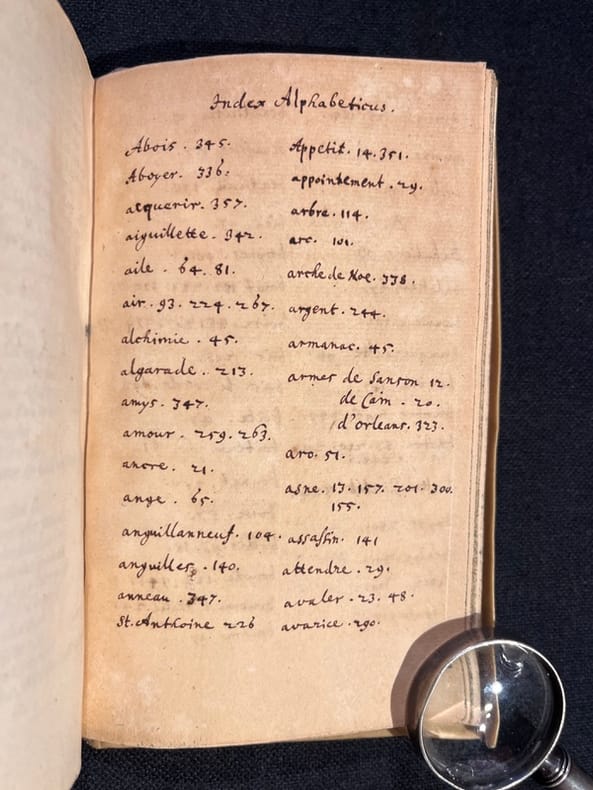 Index Alphabeticus.
Abois . 345.
Aboyer. 336.
acquerir. 357.
aiguillette . 342.
aile . 64. 81.
air. 93. 224. 267.
alchimie . 45.
algarade . 213.
amys. 347.
amour . 259. 263.
ancre . 21.
ange . 65.
anguillanneuf. 104.
anguilles . 140.
anneau . 347.
St. Anthoine 226
Appetit. 14. 351.
appointement . 29.
arbre . 114.
arc. 101.
arche de Noe. 338.
argent . 244.
armanac. 45.
armes de Sanson 12.
de Cain . 20.
d'orleans. 323.
aro. 51.
asne. 13. 157. 201. 300.
155.
assassin. 141
attendre . 29.
avaler . 23. 48.
avarice . 290.